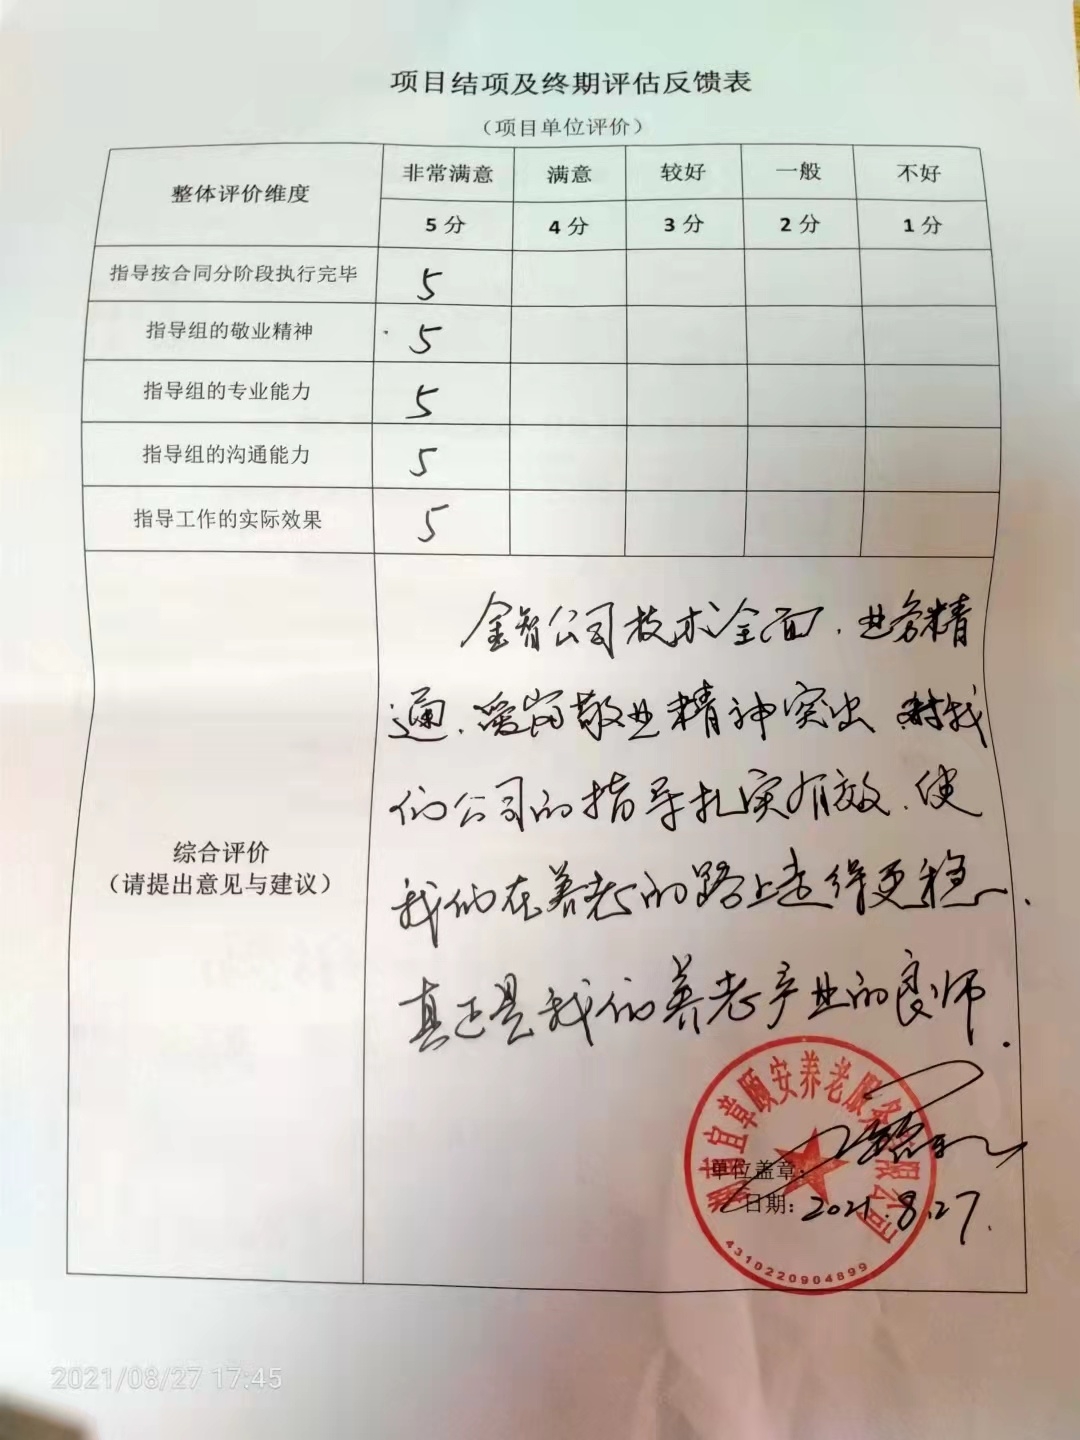 项目结项及终期评估反馈表
（项目单位评价）
整体评价维度
非常满意 满意 较好 一般 不好
5分 4分 3分 2分 1分
指导按合同分阶段执行完毕 5
指导组的敬业精神 5
指导组的专业能力 5
指导组的沟通能力 5
指导工作的实际效果 5
综合评价
（请提出意见与建议）
金智公司技术全面，业务精
通，爱岗敬业精神突出，对我
们公司的指导扎实有效，使
我们在养老的路上走得更稳，
真正是我们养老产业的良师．
湖南宜章颐安养老服务有限公司
单位盖章：
日期：2021.8.27.
4310220904899
2021/08/27 17:45